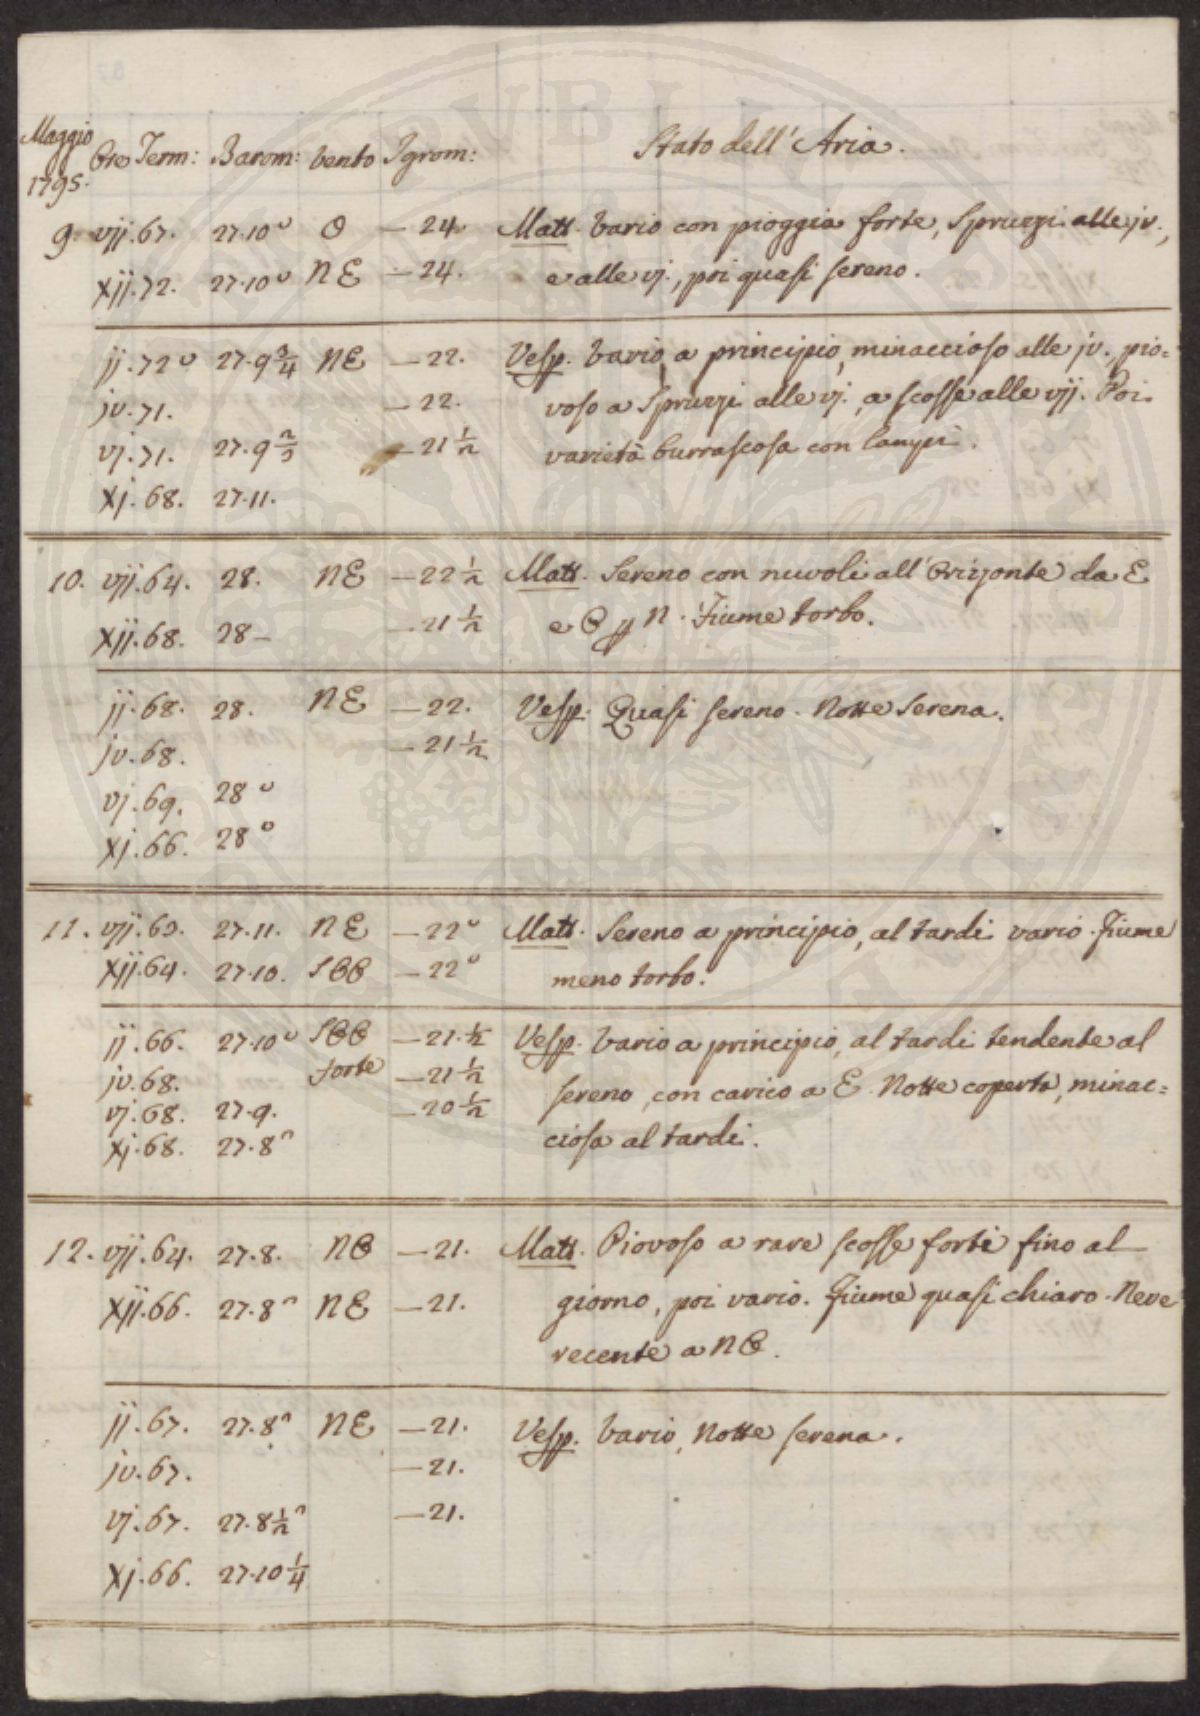 Maggio 1795. Ore Term: Barom: Vento Igrom: Stato dell'Aria.
9. vij. 67. 27.10° O — 24. Matt. Vario con pioggia forte, Spruzzi alle jv.,
xij. 72. 27.10° NE — 24. e alle vj., poi quasi sereno.
ij. 72° 27.9 3/4 NE — 22. Vesp. Vario a principio, minaccioso alle jv., pio=
jv. 71. — 22. voso a Spruzzi alle vj., a scosse alle vij. Poi
vj. 71. 27.9 2/3 — 21 1/2 varietà burrascosa con Lampi.
xj. 68. 27.11.
10. vij. 64. 28. NE — 22 1/2 Matt. Sereno con nuvoli all'Orizonte da E
xij. 68. 28 — — 21 1/2 e O p N. Fiume torbo.
ij. 68. 28. NE — 22. Vesp. Quasi sereno. Notte Serena.
jv. 68. — 21 1/2
vj. 69. 28°
xj. 66. 28°
11. vij. 63. 27.11. NE — 22° Matt. Sereno a principio, al tardi vario. Fiume
xij. 64. 27.10. SOO — 22° meno torbo.
ij. 66. 27.10° SOO — 21. 1/2 Vesp. Vario a principio, al tardi tendente al
jv. 68. forte — 21 1/2 sereno, con carico a E. Notte coperta, minac=
vj. 68. 27.9. — 20 1/2 ciosa al tardi.
xj. 68. 27.8ⁿ
12. vij. 64. 27.8. NO — 21. Matt. Piovoso a rare scosse forti fino al
xij. 66. 27.8ⁿ NE — 21. giorno, poi vario. Fiume quasi chiaro. Neve
recente a NO.
ij. 67. 27.8ⁿ NE — 21. Vesp. Vario, Notte serena.
jv. 67. — 21.
vj. 67. 27.8 1/2ⁿ — 21.
xj. 66. 27.10 1/4